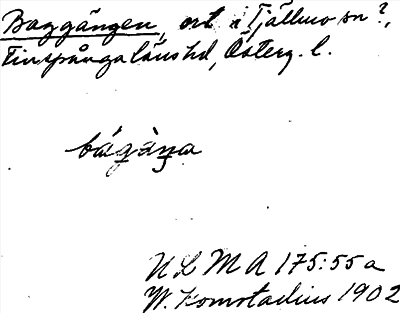 Baggängen, ort i Tjällmo sn?,
Finspånga läns hd, Österg. l.
bágàŋa
ULMA 175:55 a
W. Komstadius 1902